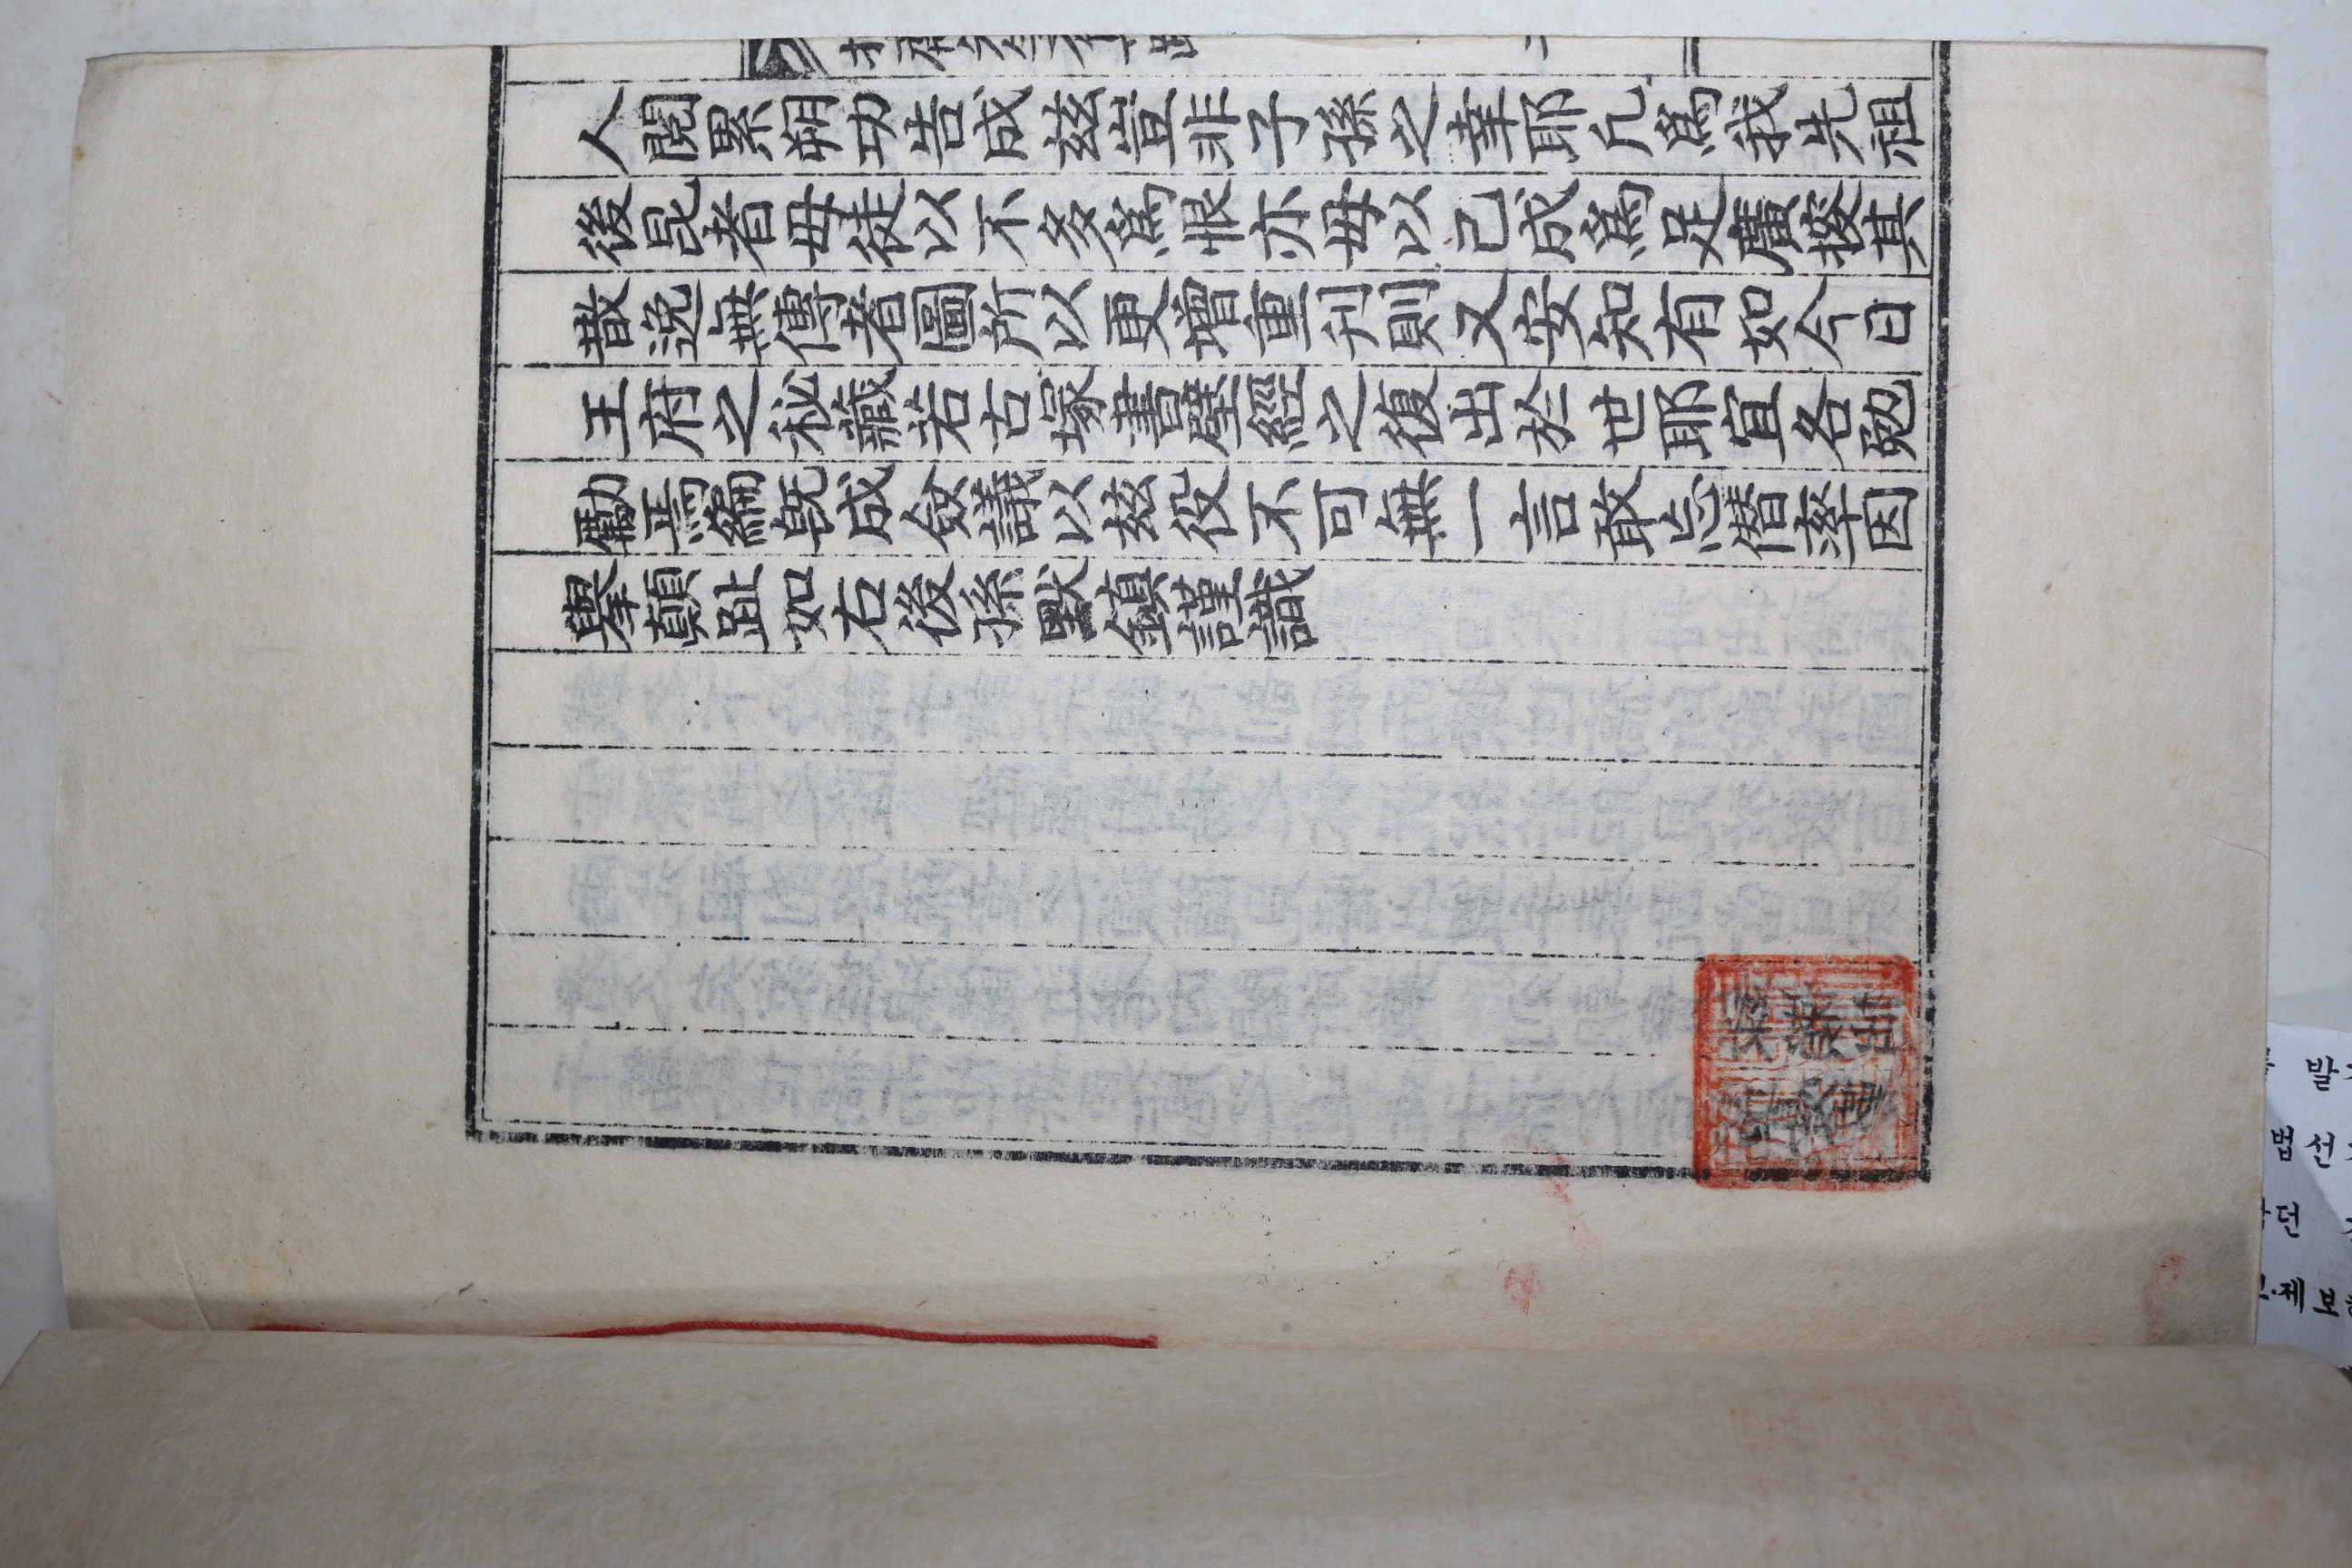 人閱累朔功告成玆豈非子孫之幸耶凢爲我先祖
後昆者毋徒以不多爲恨亦毋以已成爲足廣搜其
散逸無傳者圖所以更增重刋則又安知有如今日
王府之秘藏若古塚書壁經之復出於世耶宜各勉
勵焉編旣成僉議以玆役不可無一言敢忘僭率因
擧顛趾如右後孫默鎮謹識
二
발
법선
단
보